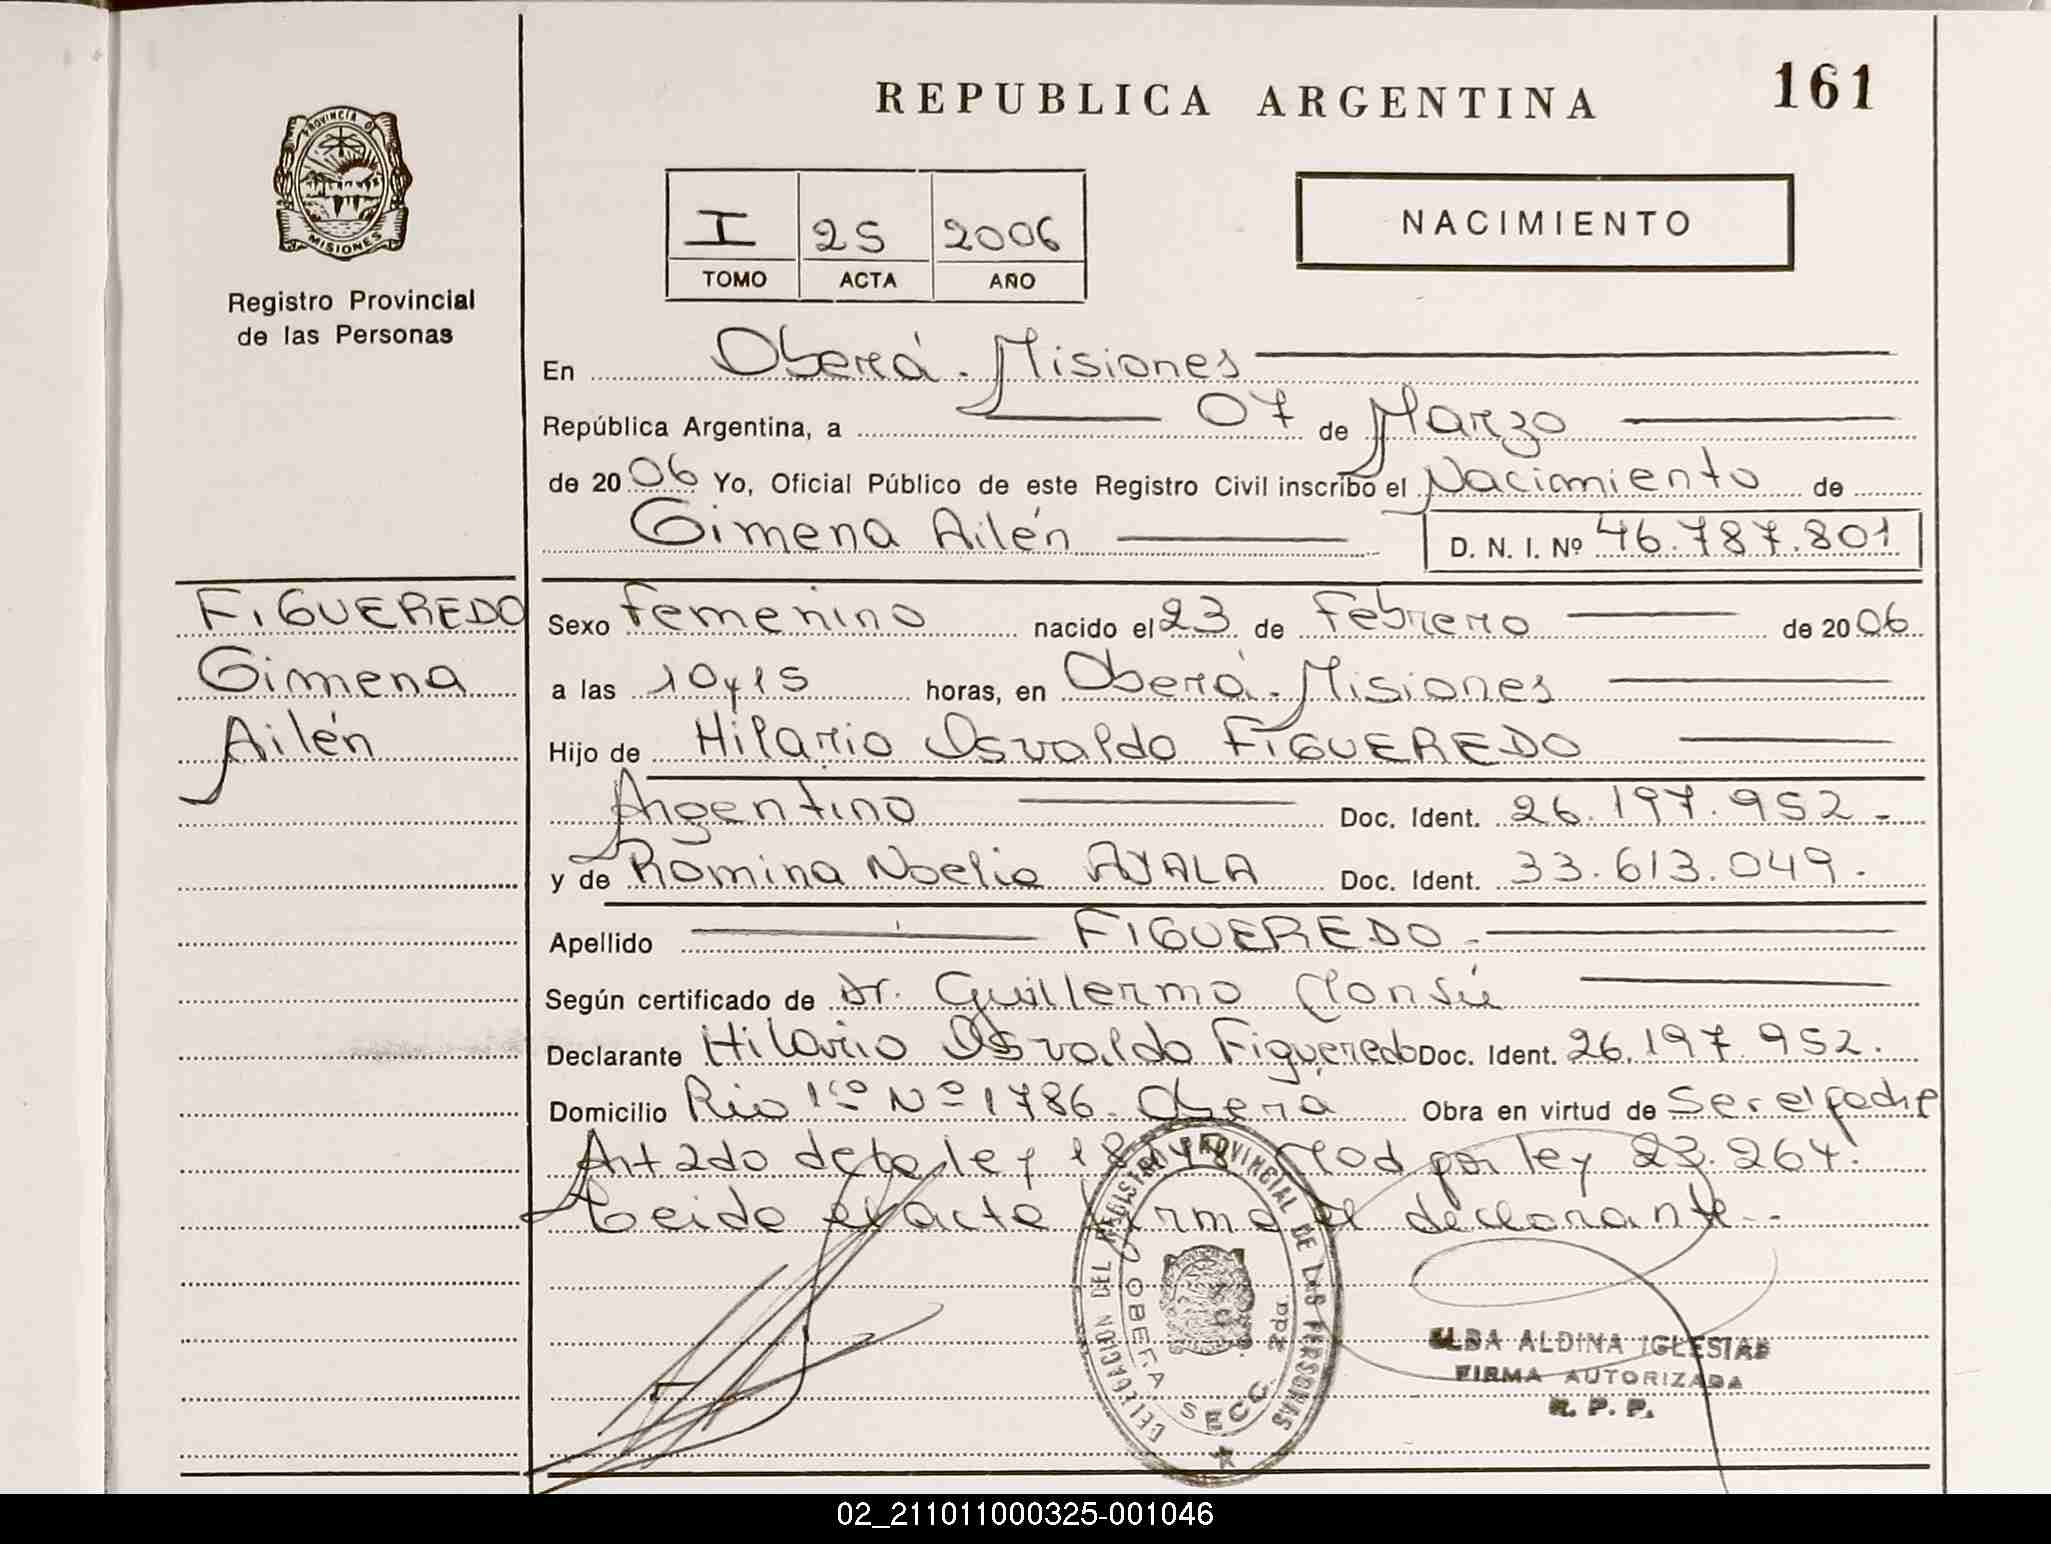 REPUBLICA ARGENTINA
161
PROVINCIA DE
MISIONES
Registro Provincial
de las Personas
I 25 2006
TOMO ACTA AÑO
NACIMIENTO
En Oberá - Misiones
República Argentina, a 07 de Marzo
de 2006 Yo, Oficial Público de este Registro Civil inscribo el Nacimiento de
Gimena Ailén D. N. I. Nº 46.787.801
FIGUEREDO
Gimena
Ailén
Sexo femenino nacido el 23 de Febrero de 2006
a las 10 y 15 horas, en Oberá - Misiones
Hijo de Hilario Osvaldo FIGUEREDO
Argentino Doc. Ident. 26.197.952.-
y de Romina Noelia AYALA Doc. Ident. 33.613.049.
Apellido FIGUEREDO.-
Según certificado de Dr. Guillermo
Declarante Hilario Osvaldo Figueredo Doc. Ident. 26.197.952.
Domicilio Rio 1ro Nº 1786. Oberá Obra en virtud de Ser el padre
Art 2do de la ley Mod por ley 23.264.
Leido el acta firma el declarante.-
DELEGACION DEL REGISTRO PROVINCIAL DE LAS PERSONAS
OBERA SECC. 2da.
ELBA ALDINA IGLESIAS
FIRMA AUTORIZADA
R. P. P.
02_211011000325-001046